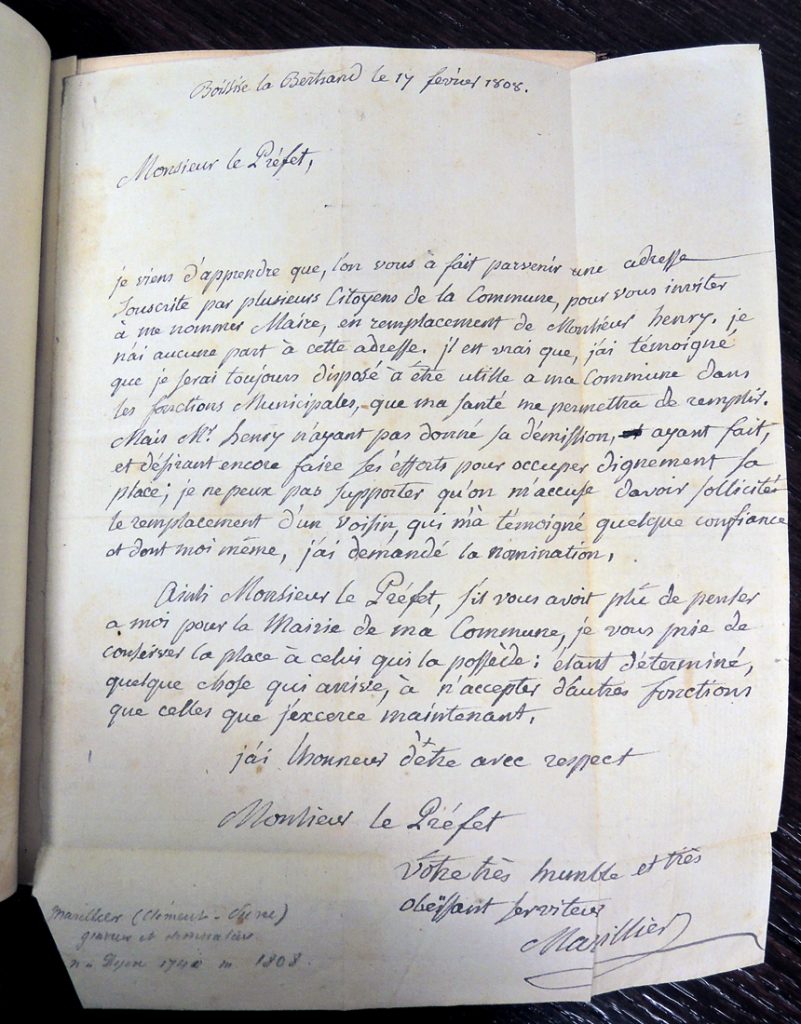 Boissise la Bertrand le 17 fevrier 1808.
Monsieur le Préfet,
je viens d'apprendre que, l'on vous à fait parvenir une adresse
souscrite par plusieurs Citoyens de la Commune, pour vous inviter
à me nommer Maire, en remplacement de Monsieur henry. je
n'ai aucune part à cette adresse. jl est vrai que, j'ai témoigné
que je serai toujours disposé à être utille a ma Commune dans
les fonctions Municipales, que ma santé me permettra de remplir.
Mais Mr. henry n'ayant pas donné sa démission, ayant fait,
et désirant encore faire ses éfforts pour occuper dignement sa
place; je ne peux pas supporter qu'on m'accuse d'avoir sollicité
le remplacement d'un voisin, qui m'à témoigné quelque confiance
et dont moi même, j'ai demandé la nomination.
Ainsi Monsieur le Préfet, s'il vous avoit plû de penser
a moi pour la Mairie de ma Commune, je vous prie de
conserver la place à celui qui la possède: étant déterminé,
quelque chose qui arrive, à n'accepter d'autres fonctions
que celles que j'excerce maintenant.
j'ai l'honneur d'être avec respect
Monsieur le Préfet
Votre très humble et très
obéïssant serviteur
Marillier
Marillier (Clément-Pierre)
graveur et dessinateur
n. Dijon 1740 m. 1808.